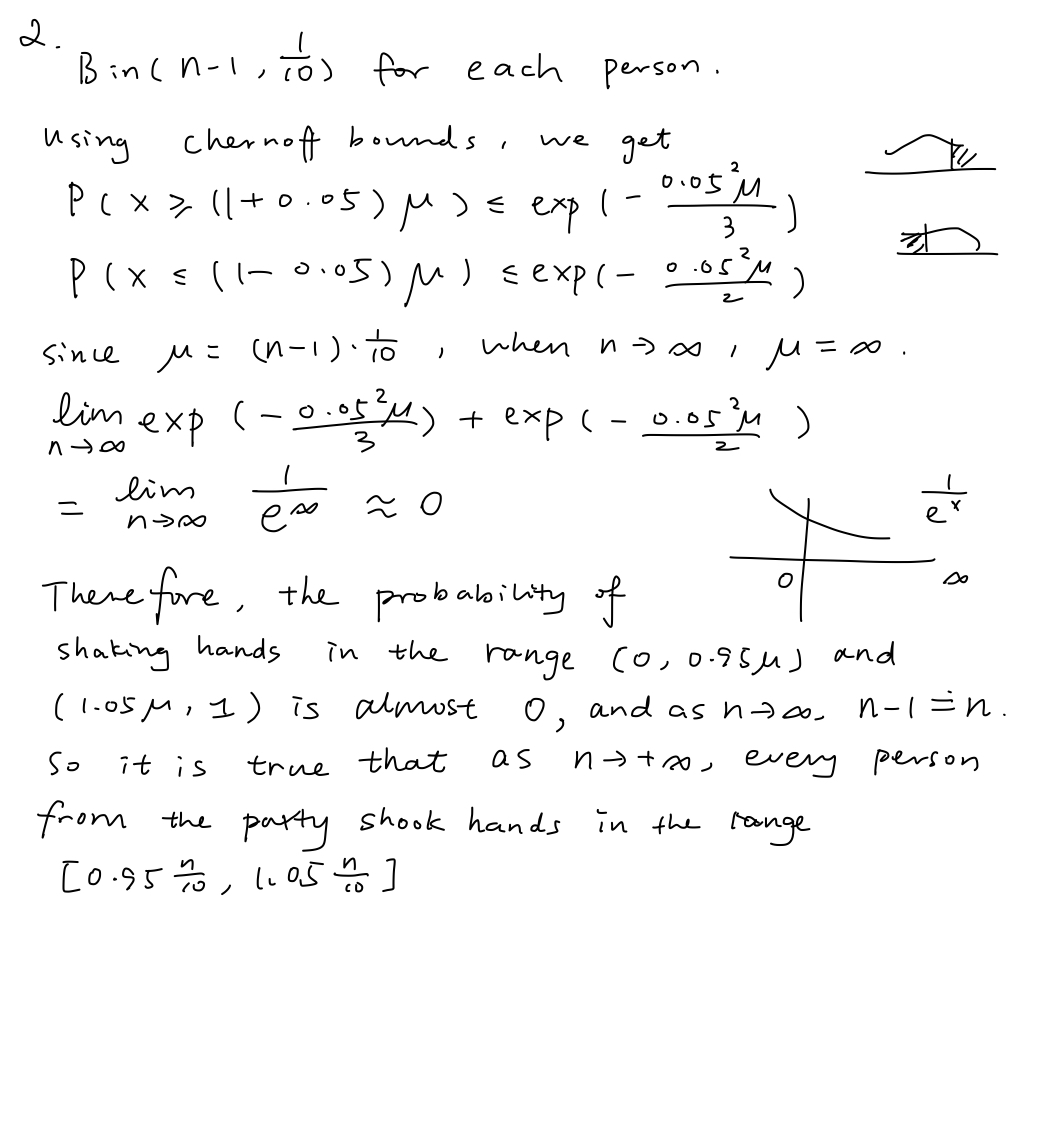 2.
Bin(n-1, 1/10) for each person.
Using chernoff bounds, we get
P(x ≥ (1+0.05)μ) ≤ exp(- 0.05²μ/3)
P(x ≤ (1-0.05)μ) ≤ exp(- 0.05²μ/2)
since μ = (n-1)·1/10, when n→∞, μ=∞.
lim n→∞ exp(- 0.05²μ/3) + exp(- 0.05²μ/2)
= lim n→∞ 1/e^∞ ≈ 0
1/e^x
0 ∞
Therefore, the probability of
shaking hands in the range (0, 0.95μ) and
(1.05μ, 1) is almost 0, and as n→∞, n-1≐n.
So it is true that as n→+∞, every person
from the party shook hands in the range
[0.95 n/10, 1.05 n/10]